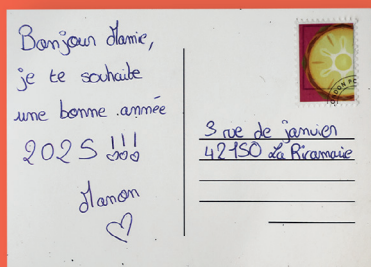 Bonjour Mamie,
je te souhaite
une bonne année
2025 !!!
Manon
3 rue de janvier
42150 La Ricamarie